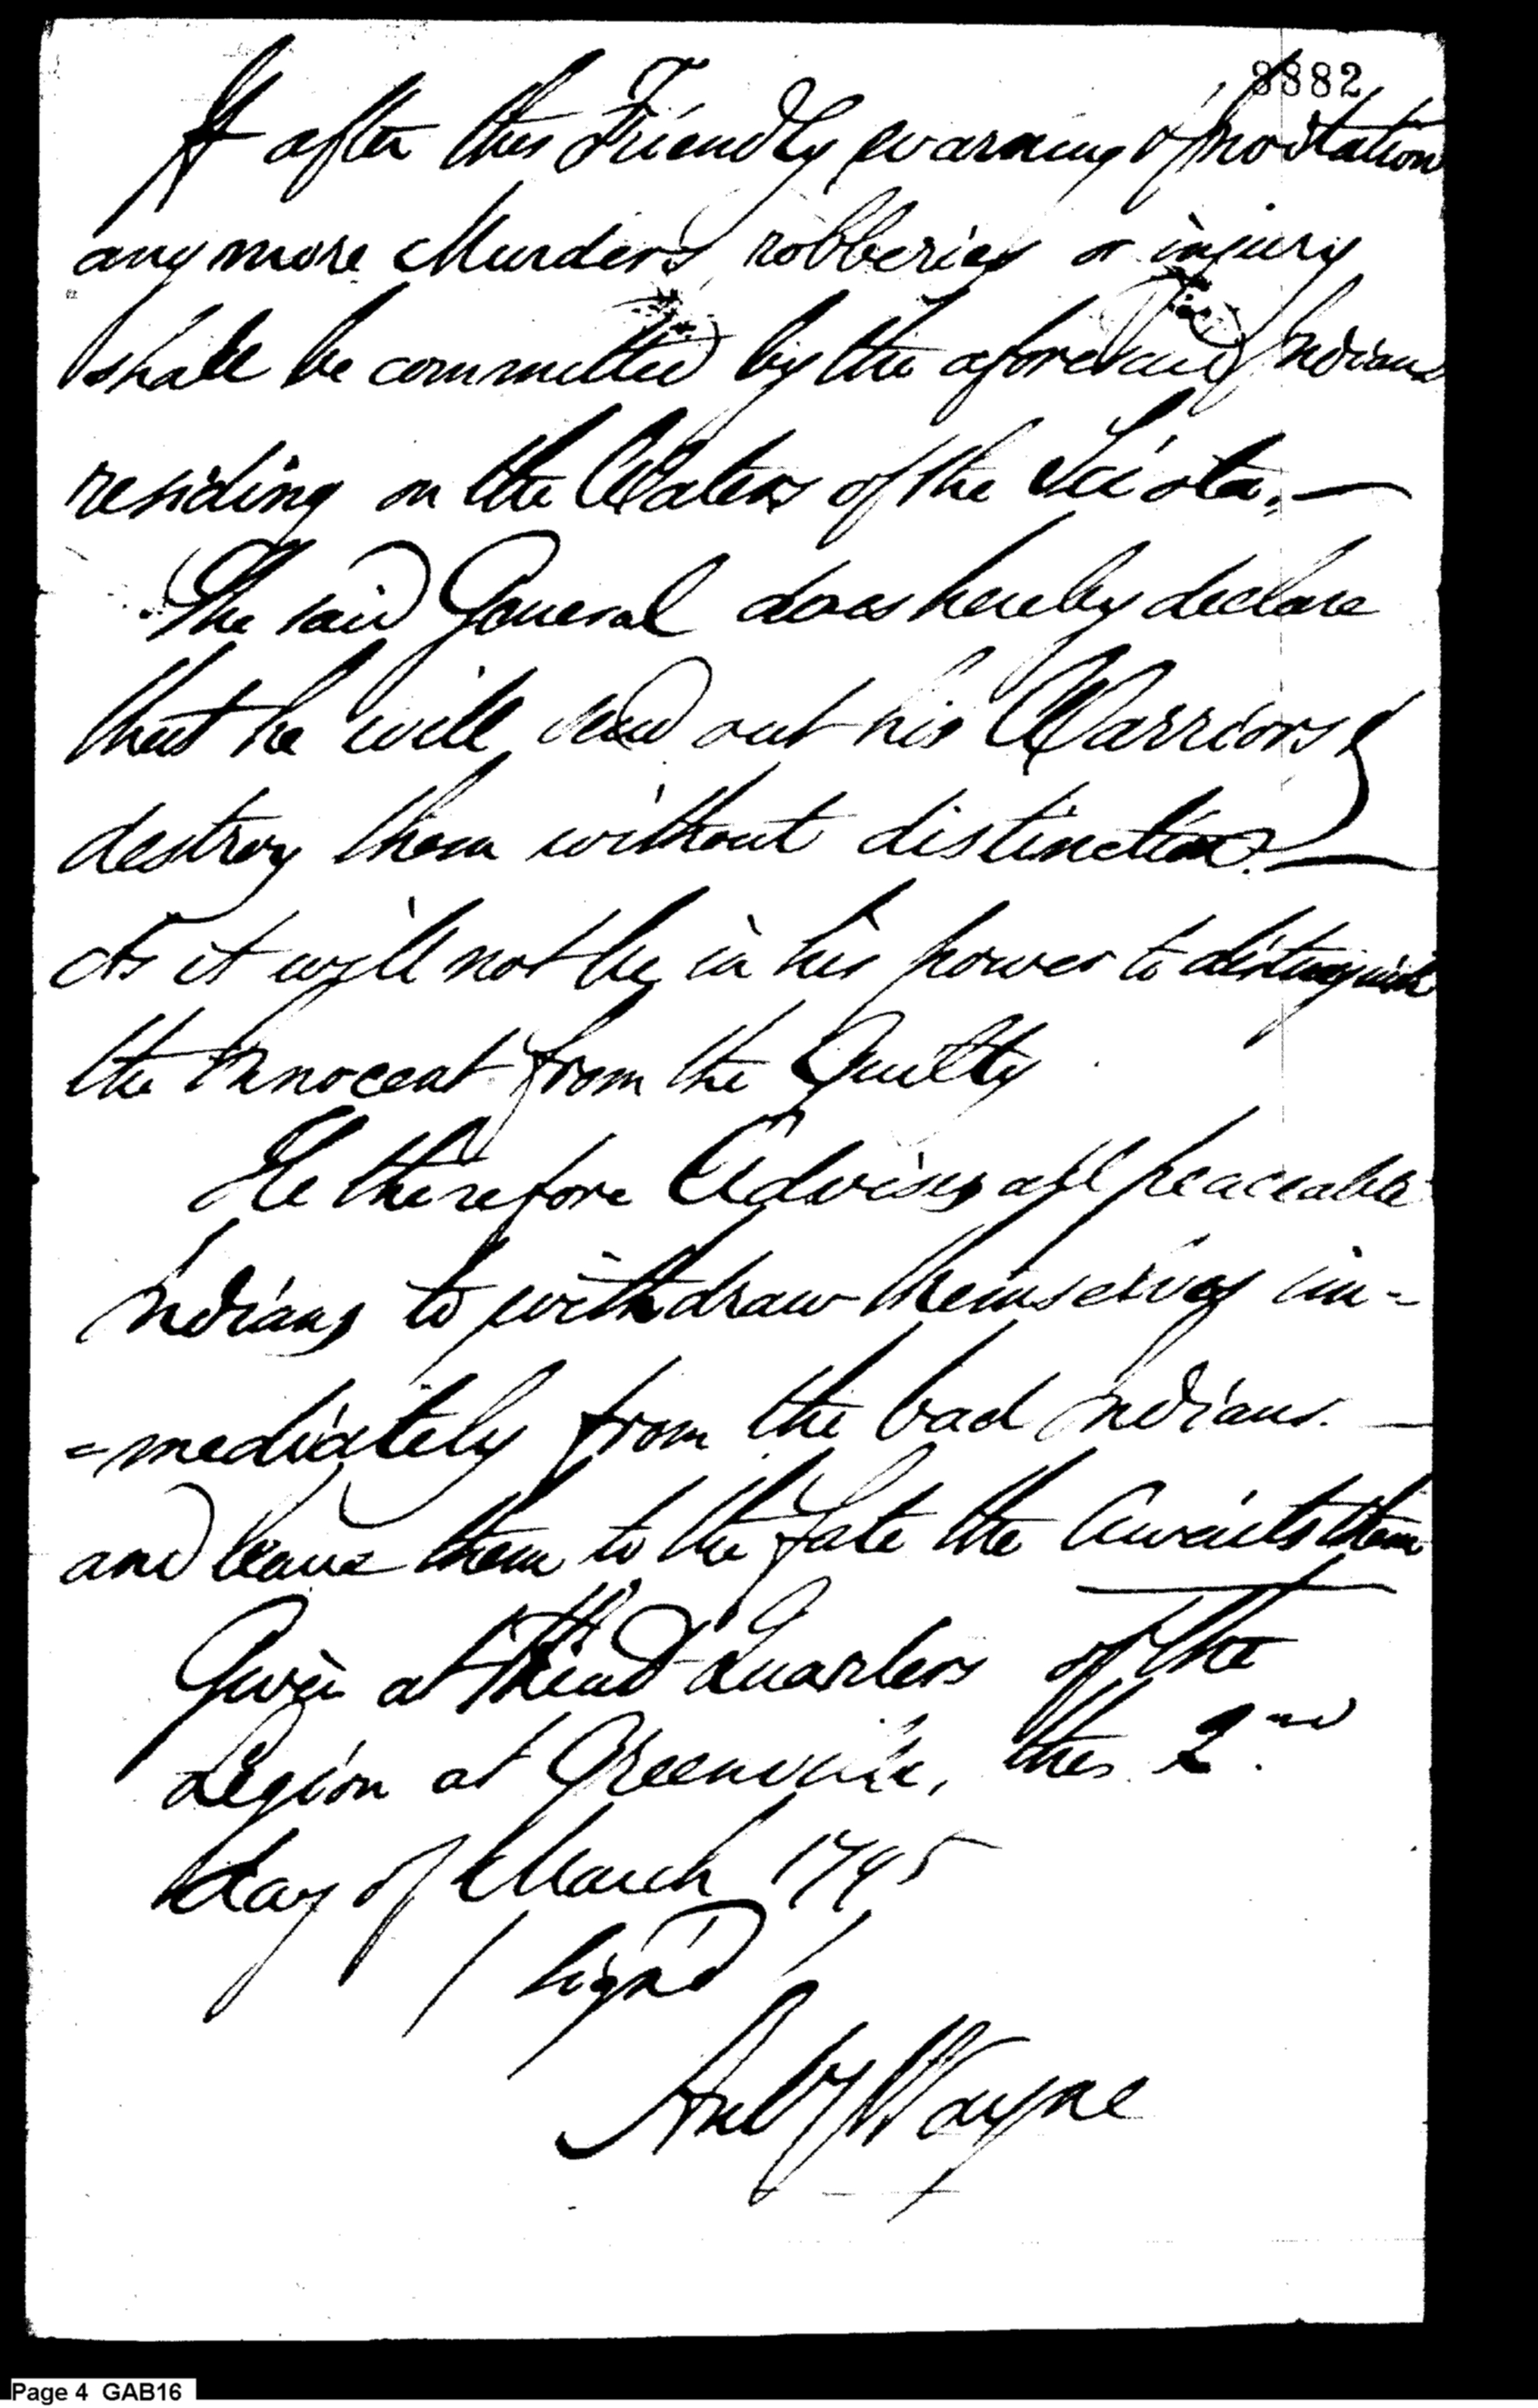 8882
If after this Friendly warning & invitation
any more Murders, robberies or injury
shall be committed by the aforesaid Indians
residing on the Waters of the Sciota,—
The said General does hereby declare
that he will send out his Warriors &
destroy them without distinction.—
As it will not be in his power to distinguish
the Innocent from the Guilty
He therefore Advises all peaceable
Indians to withdraw themselves im-
=mediately from the bad Indians.—
and leave them to the fate the Awaits them
Given at Head Quarters of the
Legion at Greenville, this 2nd
day of March 1795
/ sign'd /
Anty Wayne
Page 4 GAB16